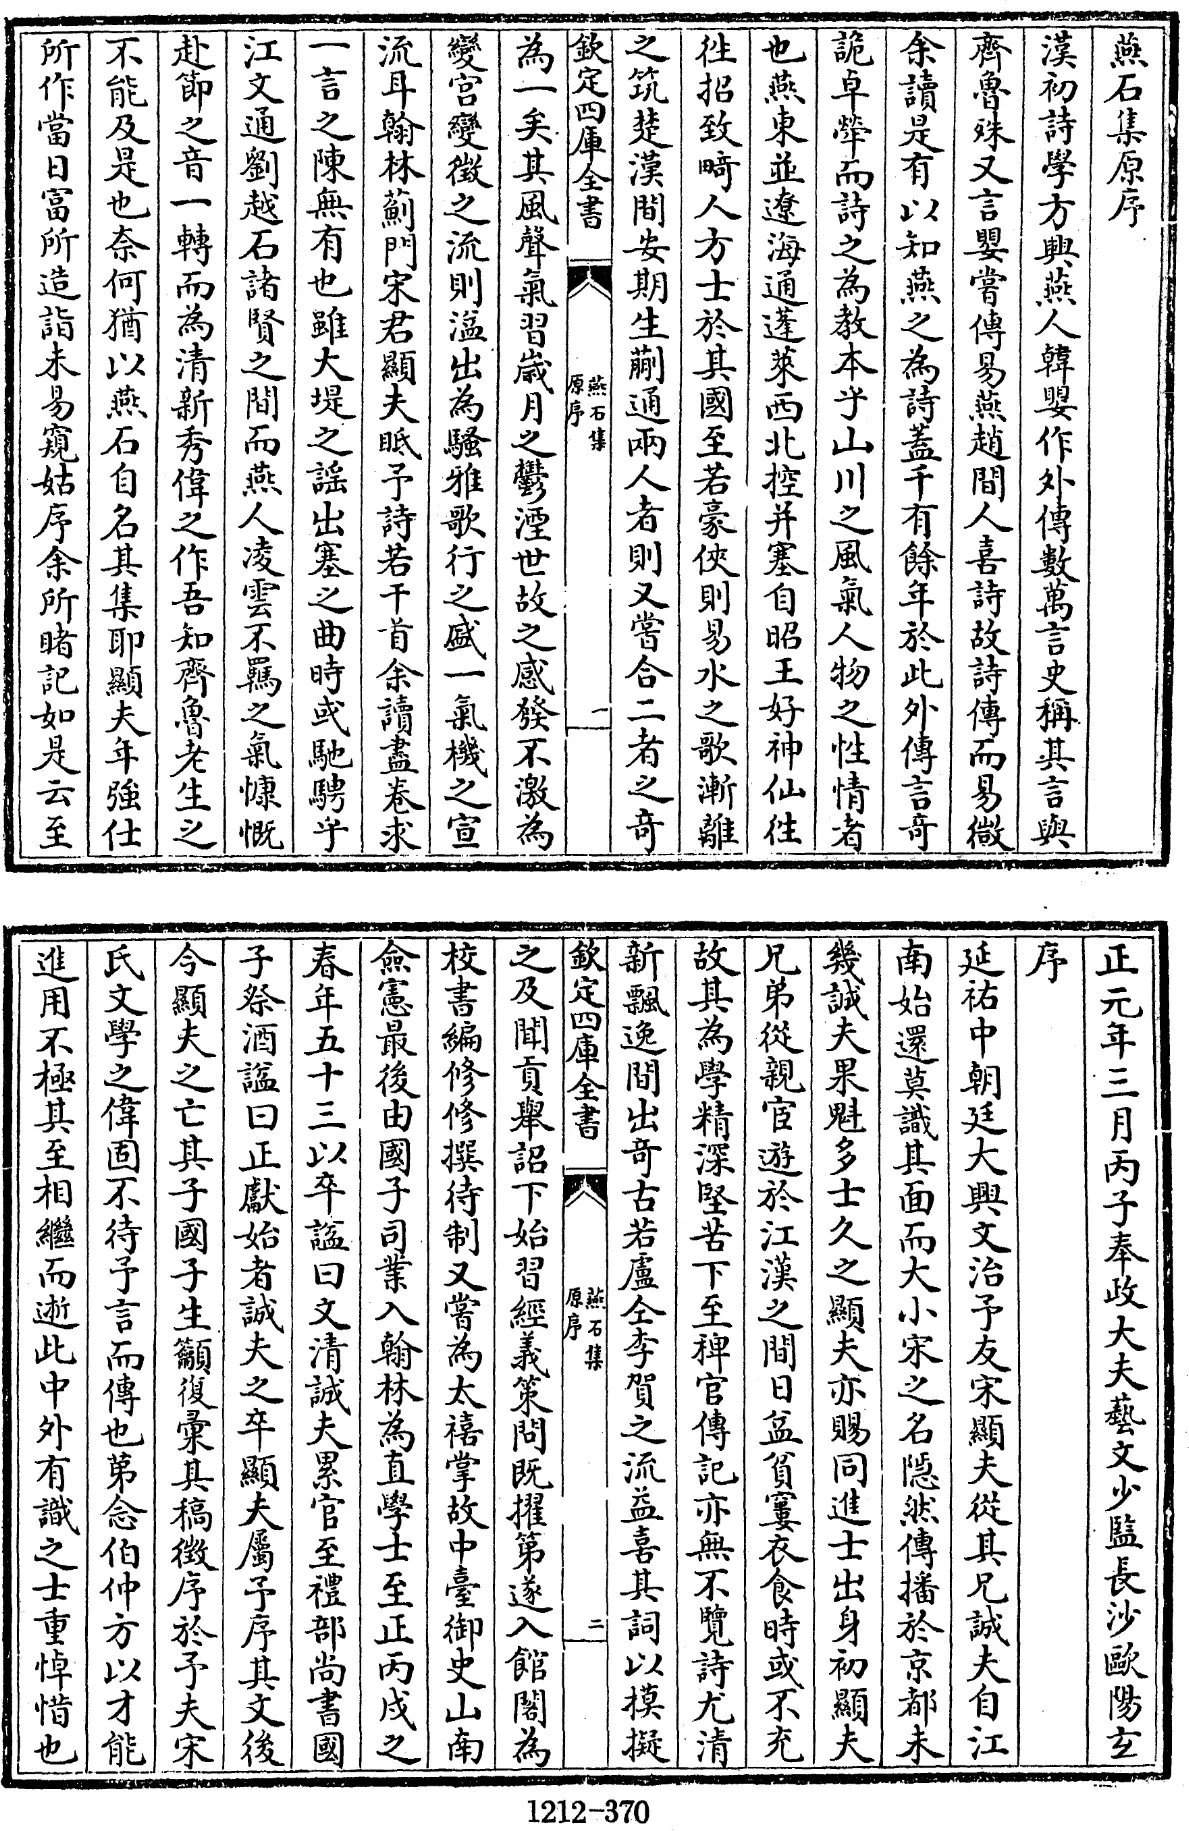 燕石集原序
漢初詩學方興燕人韓嬰作外傳數萬言史稱其言與
齊魯殊又言嬰嘗傳易燕趙間人喜詩故詩傳而易微
余讀是有以知燕之為詩蓋千有餘年於此外傳言奇
詭卓犖而詩之為教本乎山川之風氣人物之性情者
也燕東並遼海通蓬萊西北控并塞自昭王好神仙徃
徃招致畸人方士於其國至若豪俠則易水之歌漸離
之筑楚漢間安期生蒯通兩人者則又嘗合二者之奇
欽定四庫全書
燕石集
原序
一
為一矣其風聲氣習歲月之鬱湮世故之感發不激為
變宮變徵之流則溢出為騷雅歌行之盛一氣機之宣
流耳翰林薊門宋君顯夫眎予詩若干首余讀盡卷求
一言之陳無有也雖大堤之謡出塞之曲時或馳騁乎
江文通劉越石諸賢之間而燕人凌雲不羈之氣慷慨
赴節之音一轉而為清新秀偉之作吾知齊魯老生之
不能及是也奈何猶以燕石自名其集耶顯夫年強仕
所作當日富所造詣未易窺姑序余所睹記如是云至
正元年三月丙子奉政大夫藝文少監長沙歐陽玄
序
延祐中朝廷大興文治予友宋顯夫從其兄誠夫自江
南始還莫識其面而大小宋之名隠然傳播於京都未
幾誠夫果魁多士久之顯夫亦賜同進士出身初顯夫
兄弟從親宦遊於江漢之間日益貧窶衣食時或不充
故其為學精深堅苦下至稗官傳記亦無不覽詩尤清
新飄逸間出奇古若盧仝李賀之流益喜其詞以摸擬
欽定四庫全書
燕石集
原序
二
之及聞貢舉詔下始習經義策問既擢第遂入館閣為
校書編修修撰待制又嘗為太禧掌故中臺御史山南
僉憲最後由國子司業入翰林為直學士至正丙戌之
春年五十三以卒諡曰文清誠夫累官至禮部尚書國
子祭酒諡曰正獻始者誠夫之卒顯夫屬予序其文後
今顯夫之亡其子國子生籲復彙其稿徵序於予夫宋
氏文學之偉固不待予言而傳也第念伯仲方以才能
進用不極其至相繼而逝此中外有識之士重悼惜也
1212-370